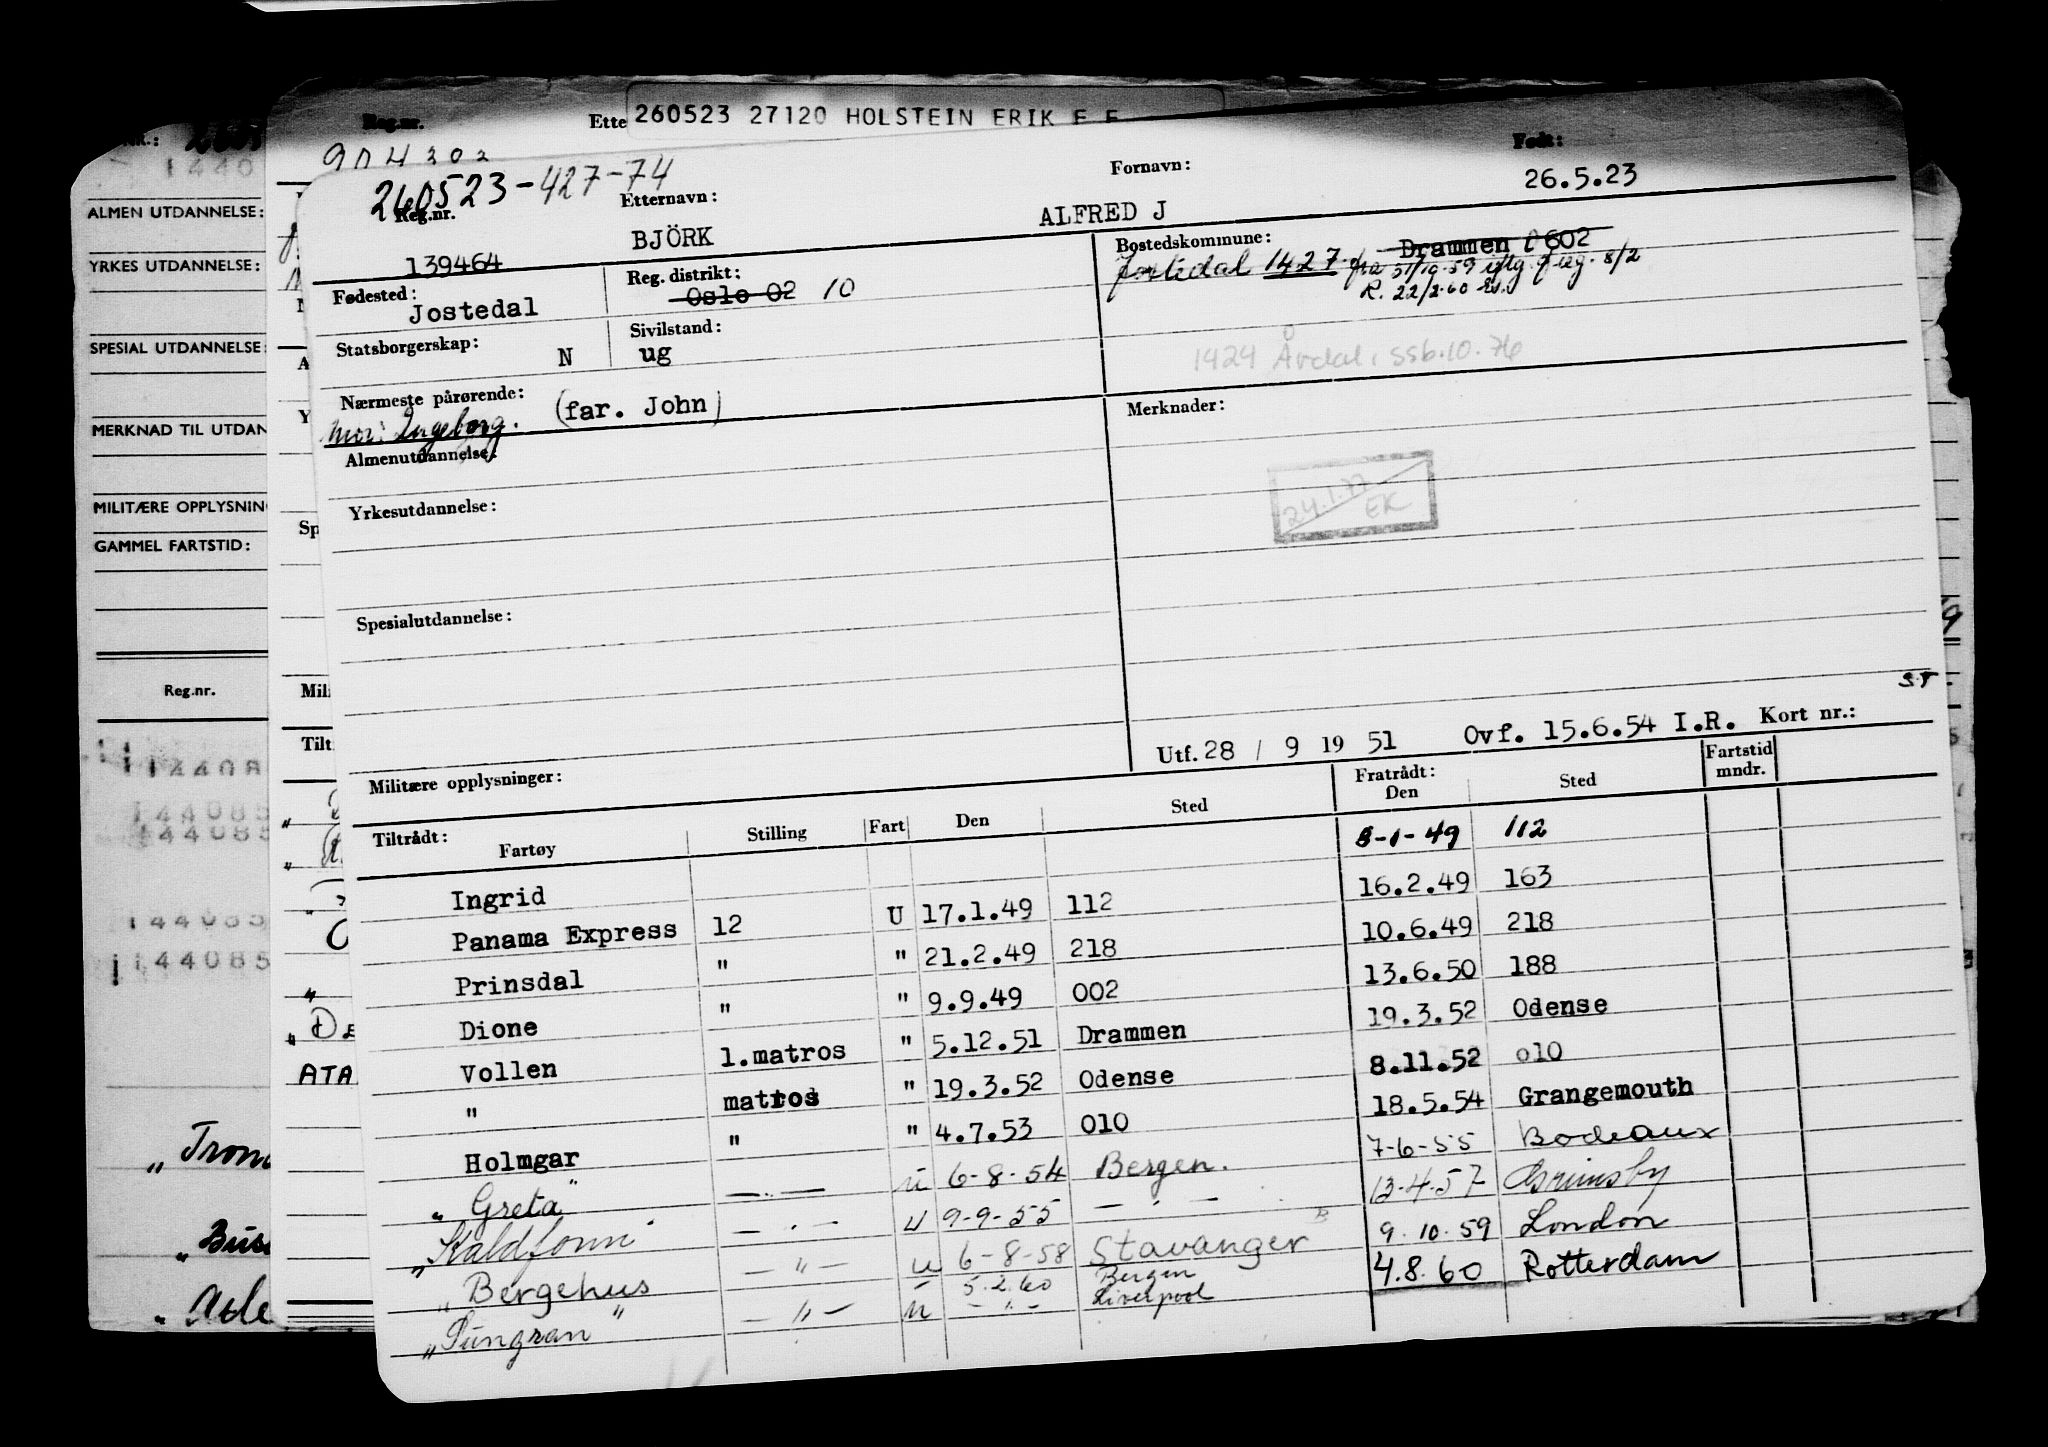 Reg.nr. Ette 260523 27120 HOLSTEIN ERIK E F
260523-427-74
Reg.nr. Etternavn: Fornavn: Født:
139464 BJÖRK ALFRED J 26.5.23
Fødested: Reg. distrikt: Bostedskommune:
Jostedal Oslo 02 10 Drammen 0602
Jostedal 1427 fra 31/10.59
R. 22/2.60
Statsborgerskap: N Sivilstand: ug
1424 Årdal, SSB.10.76
Nærmeste pårørende: (far. John)
Mor: Ingeborg.
Merknader:
Almenutdannelse:
24.1.77
EK
Yrkesutdannelse:
Spesialutdannelse:
Militære opplysninger:
Utf. 28 / 9 19 51 Ovf. 15.6.54 I.R. Kort nr.:
Tiltrådt: Fartøy Stilling Fart Den Sted Fratrådt: Den Sted Fartstid mndr.
Ingrid 8-1-49 112
Panama Express 12 U 17.1.49 112 16.2.49 163
Prinsdal " " 21.2.49 218 10.6.49 218
Dione " " 9.9.49 002 13.6.50 188
Vollen 1.matros " 5.12.51 Drammen 19.3.52 Odense
" matros " 19.3.52 Odense 8.11.52 010
Holmgar " " 4.7.53 010 18.5.54 Grangemouth
"Greta" —"— u 6-8-54 Bergen. 7-6-55 Bodeaux
"Kaldfonn" —"— u 9-9-55 —"— 13-4-57 Grimsby
"Bergehus —"— u 6-8-58 Stavanger 9.10.59 London
"Sungran" —"— u 5.2.60 Bergen 4.8.60 Rotterdam
—"— Liverpool
NR.:
1440
ALMEN UTDANNELSE:
YRKES UTDANNELSE:
SPESIAL UTDANNELSE:
MERKNAD TIL UTDAN
MILITÆRE OPPLYSNIN
GAMMEL FARTSTID:
Reg.nr.
Sp
Mil
Tilt
14408
144085
144085
144085
144085
ATA